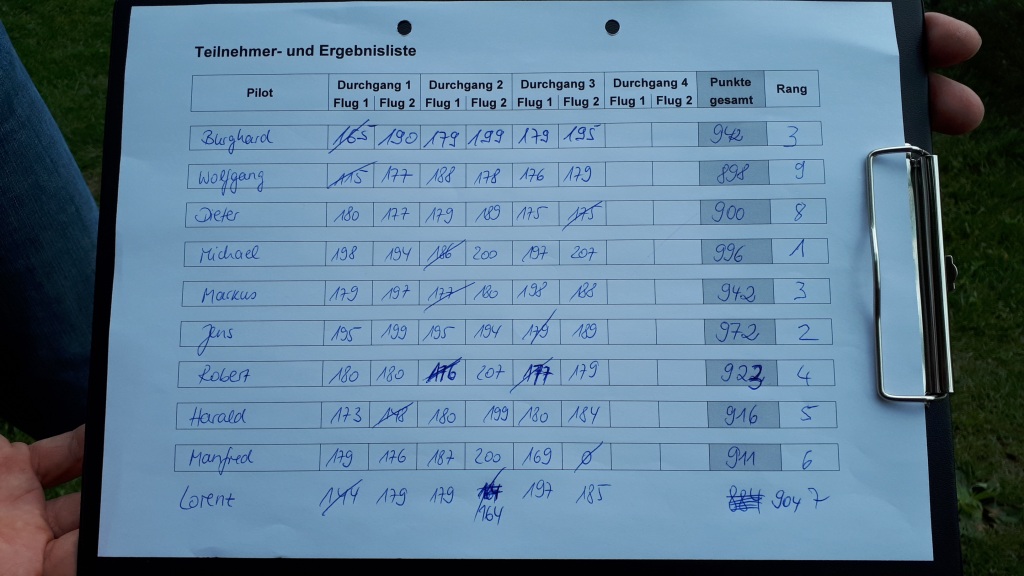 Teilnehmer- und Ergebnisliste
Pilot Durchgang 1 Durchgang 2 Durchgang 3 Durchgang 4 Punkte gesamt Rang
Flug 1 Flug 2 Flug 1 Flug 2 Flug 1 Flug 2 Flug 1 Flug 2
Burghard 165 190 179 199 179 195 942 3
Wolfgang 115 177 188 178 176 179 898 9
Dieter 180 177 179 189 175 175 900 8
Michael 198 194 186 200 197 207 996 1
Markus 179 197 177 180 198 188 942 3
Jens 195 199 195 194 179 189 972 2
Robert 180 180 176 207 177 179 923 4
Harald 173 148 180 199 180 184 916 5
Manfred 179 176 187 200 169 0 911 6
Lorent 144 179 179 164 197 185 884 904 7